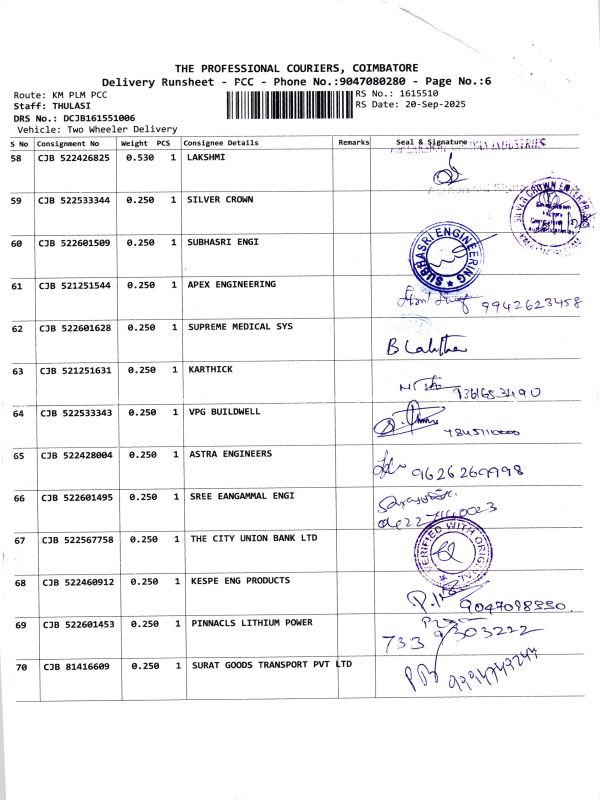 THE PROFESSIONAL COURIERS, COIMBATORE
Delivery Runsheet - PCC - Phone No.:9047080280 - Page No.:6
Route: KM PLM PCC
RS No.: 1615510
Staff: THULASI
RS Date: 20-Sep-2025
DRS No.: DCJB161551006
Vehicle: Two Wheeler Delivery
S No Consignment No Weight PCS Consignee Details Remarks Seal & Signature
58 CJB 522426825 0.530 1 LAKSHMI
59 CJB 522533344 0.250 1 SILVER CROWN
SILVER CROWN ENTERPRISES
60 CJB 522601509 0.250 1 SUBHASRI ENGI
SUBHASRI ENGINEERING
61 CJB 521251544 0.250 1 APEX ENGINEERING
9942623458
62 CJB 522601628 0.250 1 SUPREME MEDICAL SYS
63 CJB 521251631 0.250 1 KARTHICK
64 CJB 522533343 0.250 1 VPG BUILDWELL
65 CJB 522428004 0.250 1 ASTRA ENGINEERS
9626269998
66 CJB 522601495 0.250 1 SREE EANGAMMAL ENGI
67 CJB 522567758 0.250 1 THE CITY UNION BANK LTD
VERIFIED WITH ORIGINAL
68 CJB 522460912 0.250 1 KESPE ENG PRODUCTS
69 CJB 522601453 0.250 1 PINNACLS LITHIUM POWER
733 9303222
70 CJB 81416609 0.250 1 SURAT GOODS TRANSPORT PVT LTD